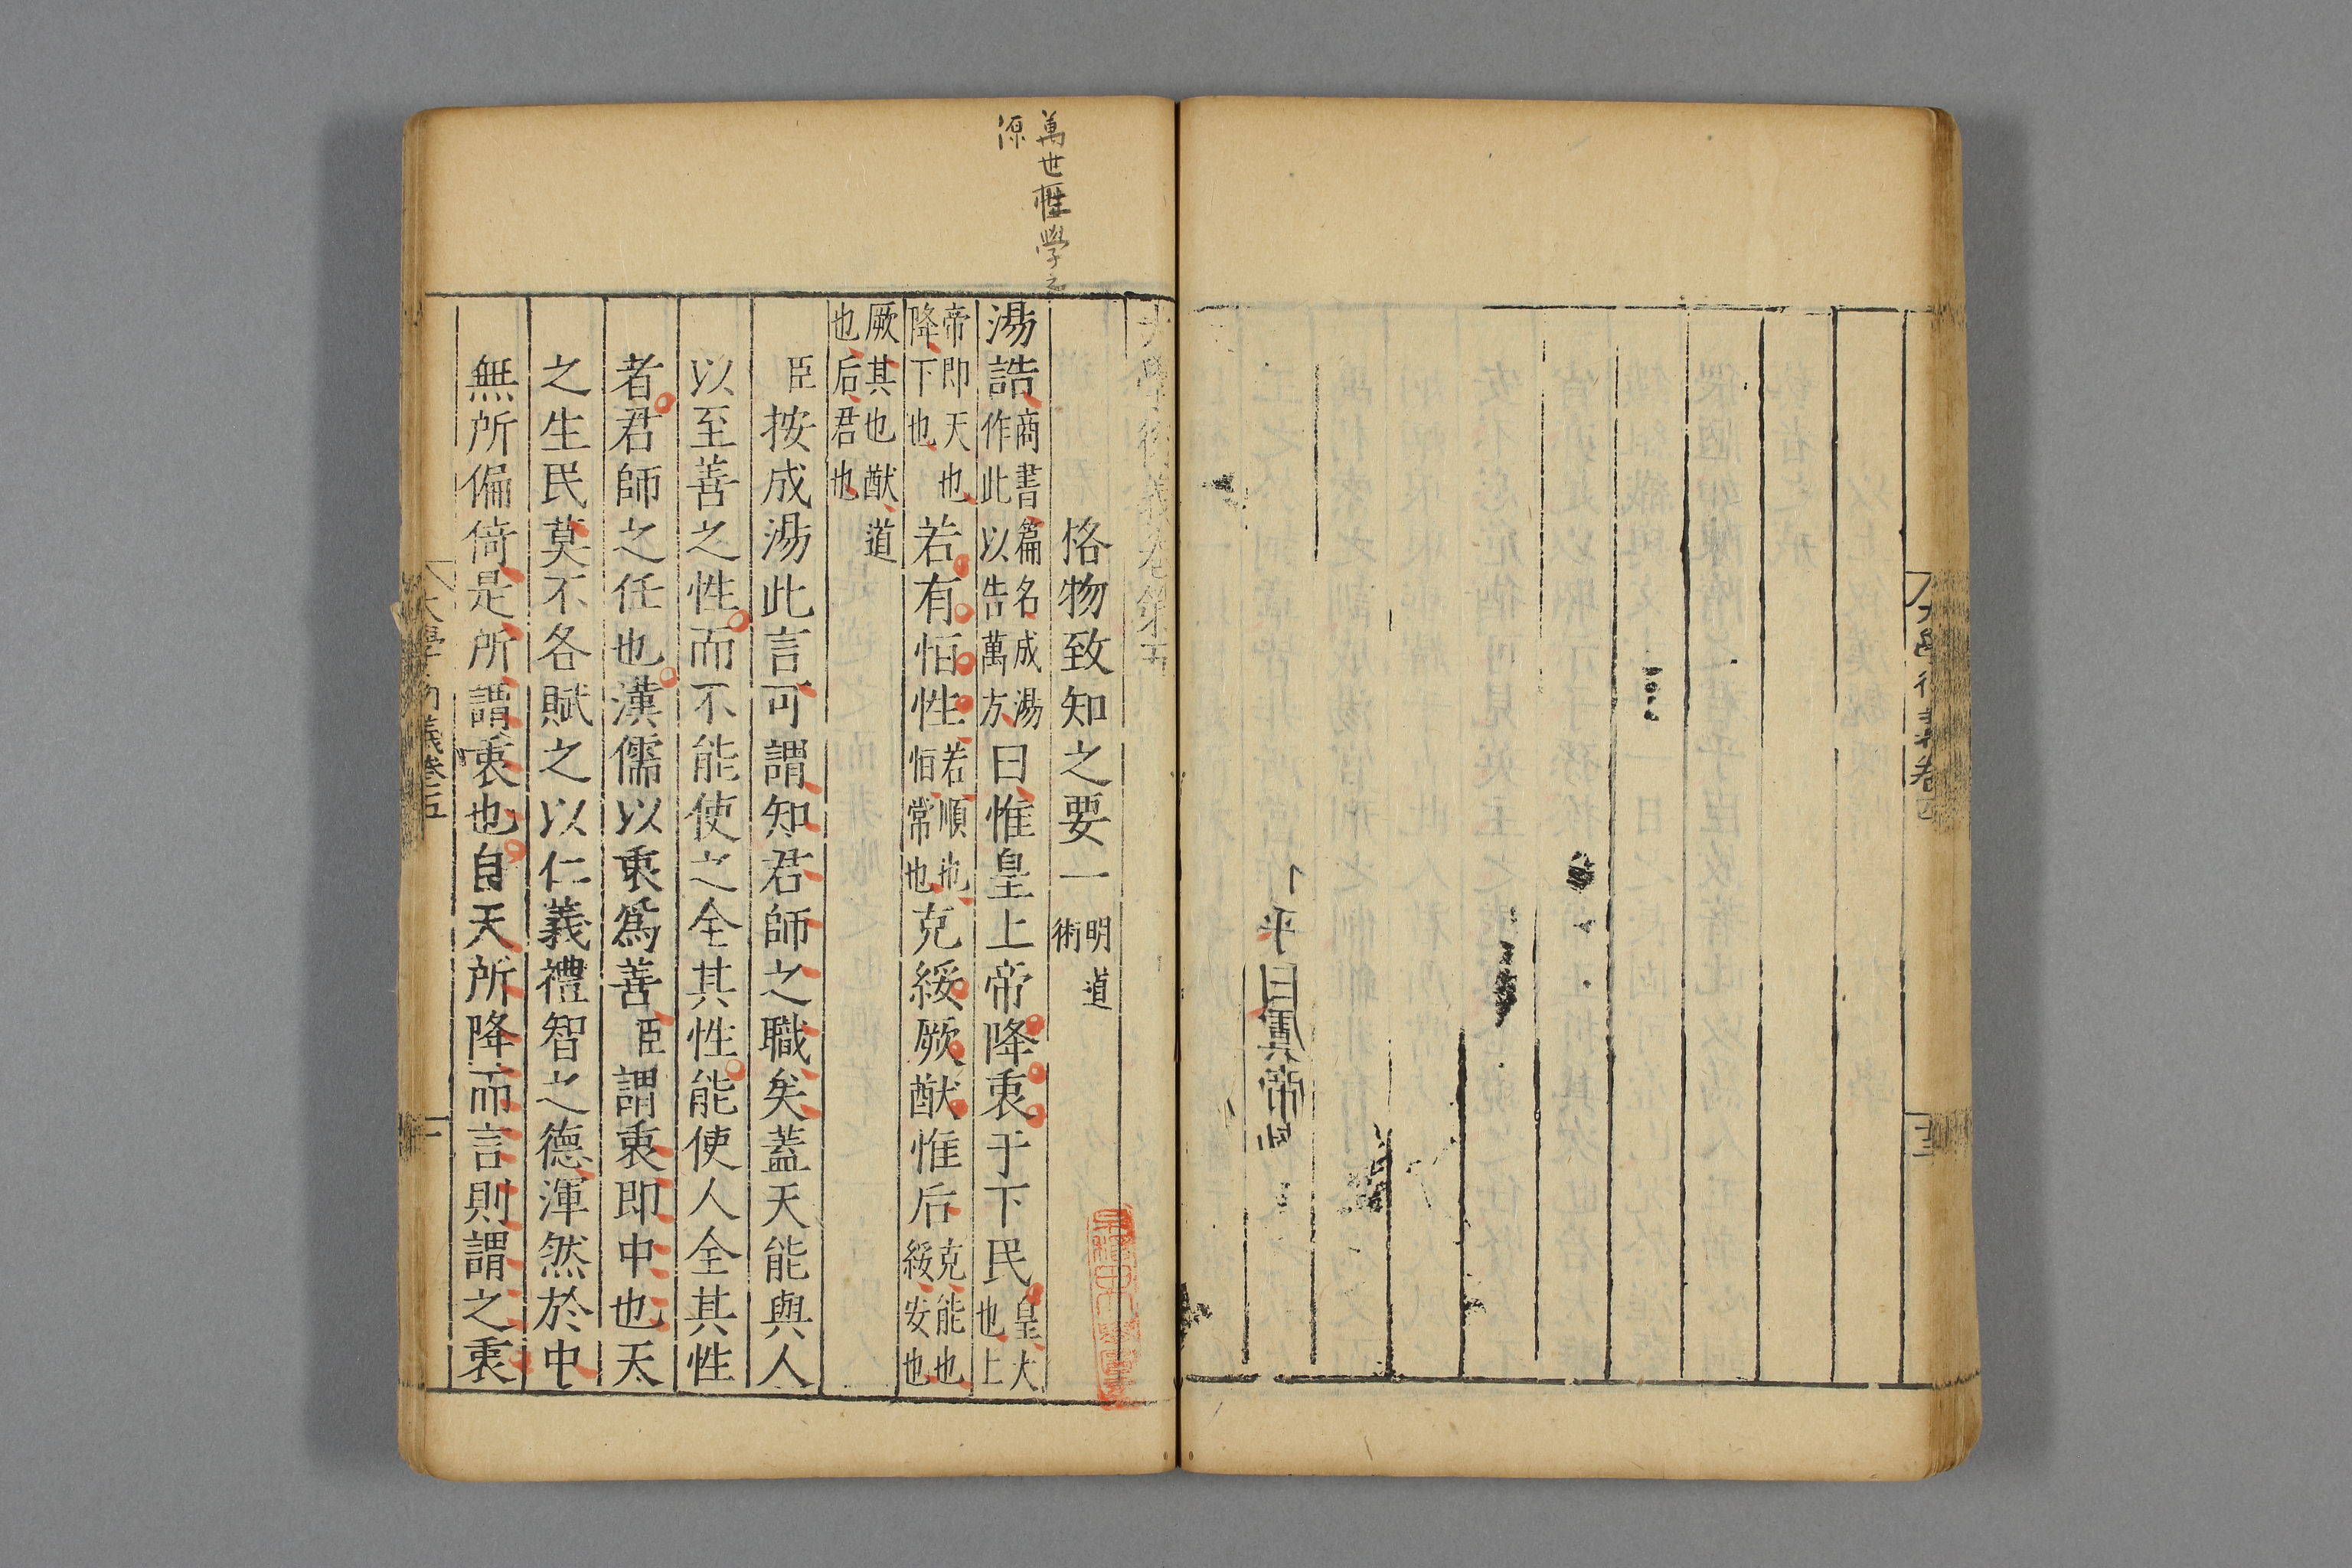 大學衍義卷四
十三
乎曰虞帝
萬世性學之
源
大學衍義卷第五
格物致知之要一 明道術
湯誥 商書篇名成湯作此以告萬方 曰惟皇上帝降衷于下民 皇大也上
帝即天也降下也 若有恒性 若順也恒常也 克綏厥猷惟后 克能也綏安也
厥其也猷道也后君也
臣按成湯此言可謂知君師之職矣蓋天能與人
以至善之性而不能使之全其性能使人全其性
者君師之任也漢儒以衷爲善臣謂衷即中也天
之生民莫不各賦之以仁義禮智之德渾然於中
無所偏倚是所謂衷也自天所降而言則謂之衷
大學衍義卷五
一